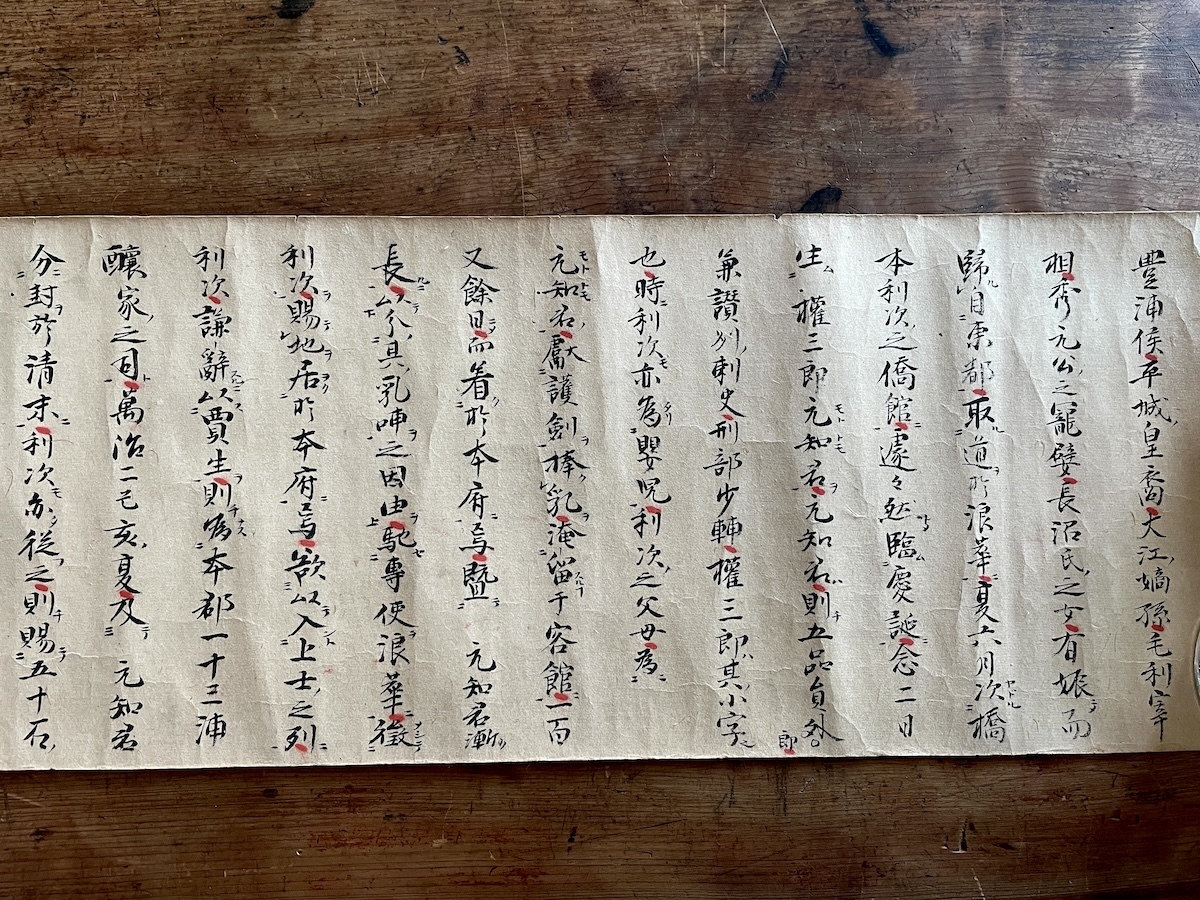 豊浦侯平城皇裔大江嫡孫毛利宰
相秀元公之寵嬖長沼氏之女有娠而
歸自東都取道於浪華夏六月次橋
本利次之僑館遽々然臨慶誕念二日
生權三郎元知君元知君則五品員外郎
兼讃州刺史刑部少輔權三郎其小字
也時利次亦為嬰児利次之父母為
元知君獻護劍捧乳淹留于容館一百
又餘日而着於本府焉曁 元知君漸
長以 具乳呻之因由馳專使浪華徵
利次賜地居於本府焉欲以入上士之列
利次謙辭以賈生則為本郡一十三浦
釀家之司萬治二己亥夏及 元知君
分封於清末利次亦從之則賜五十石